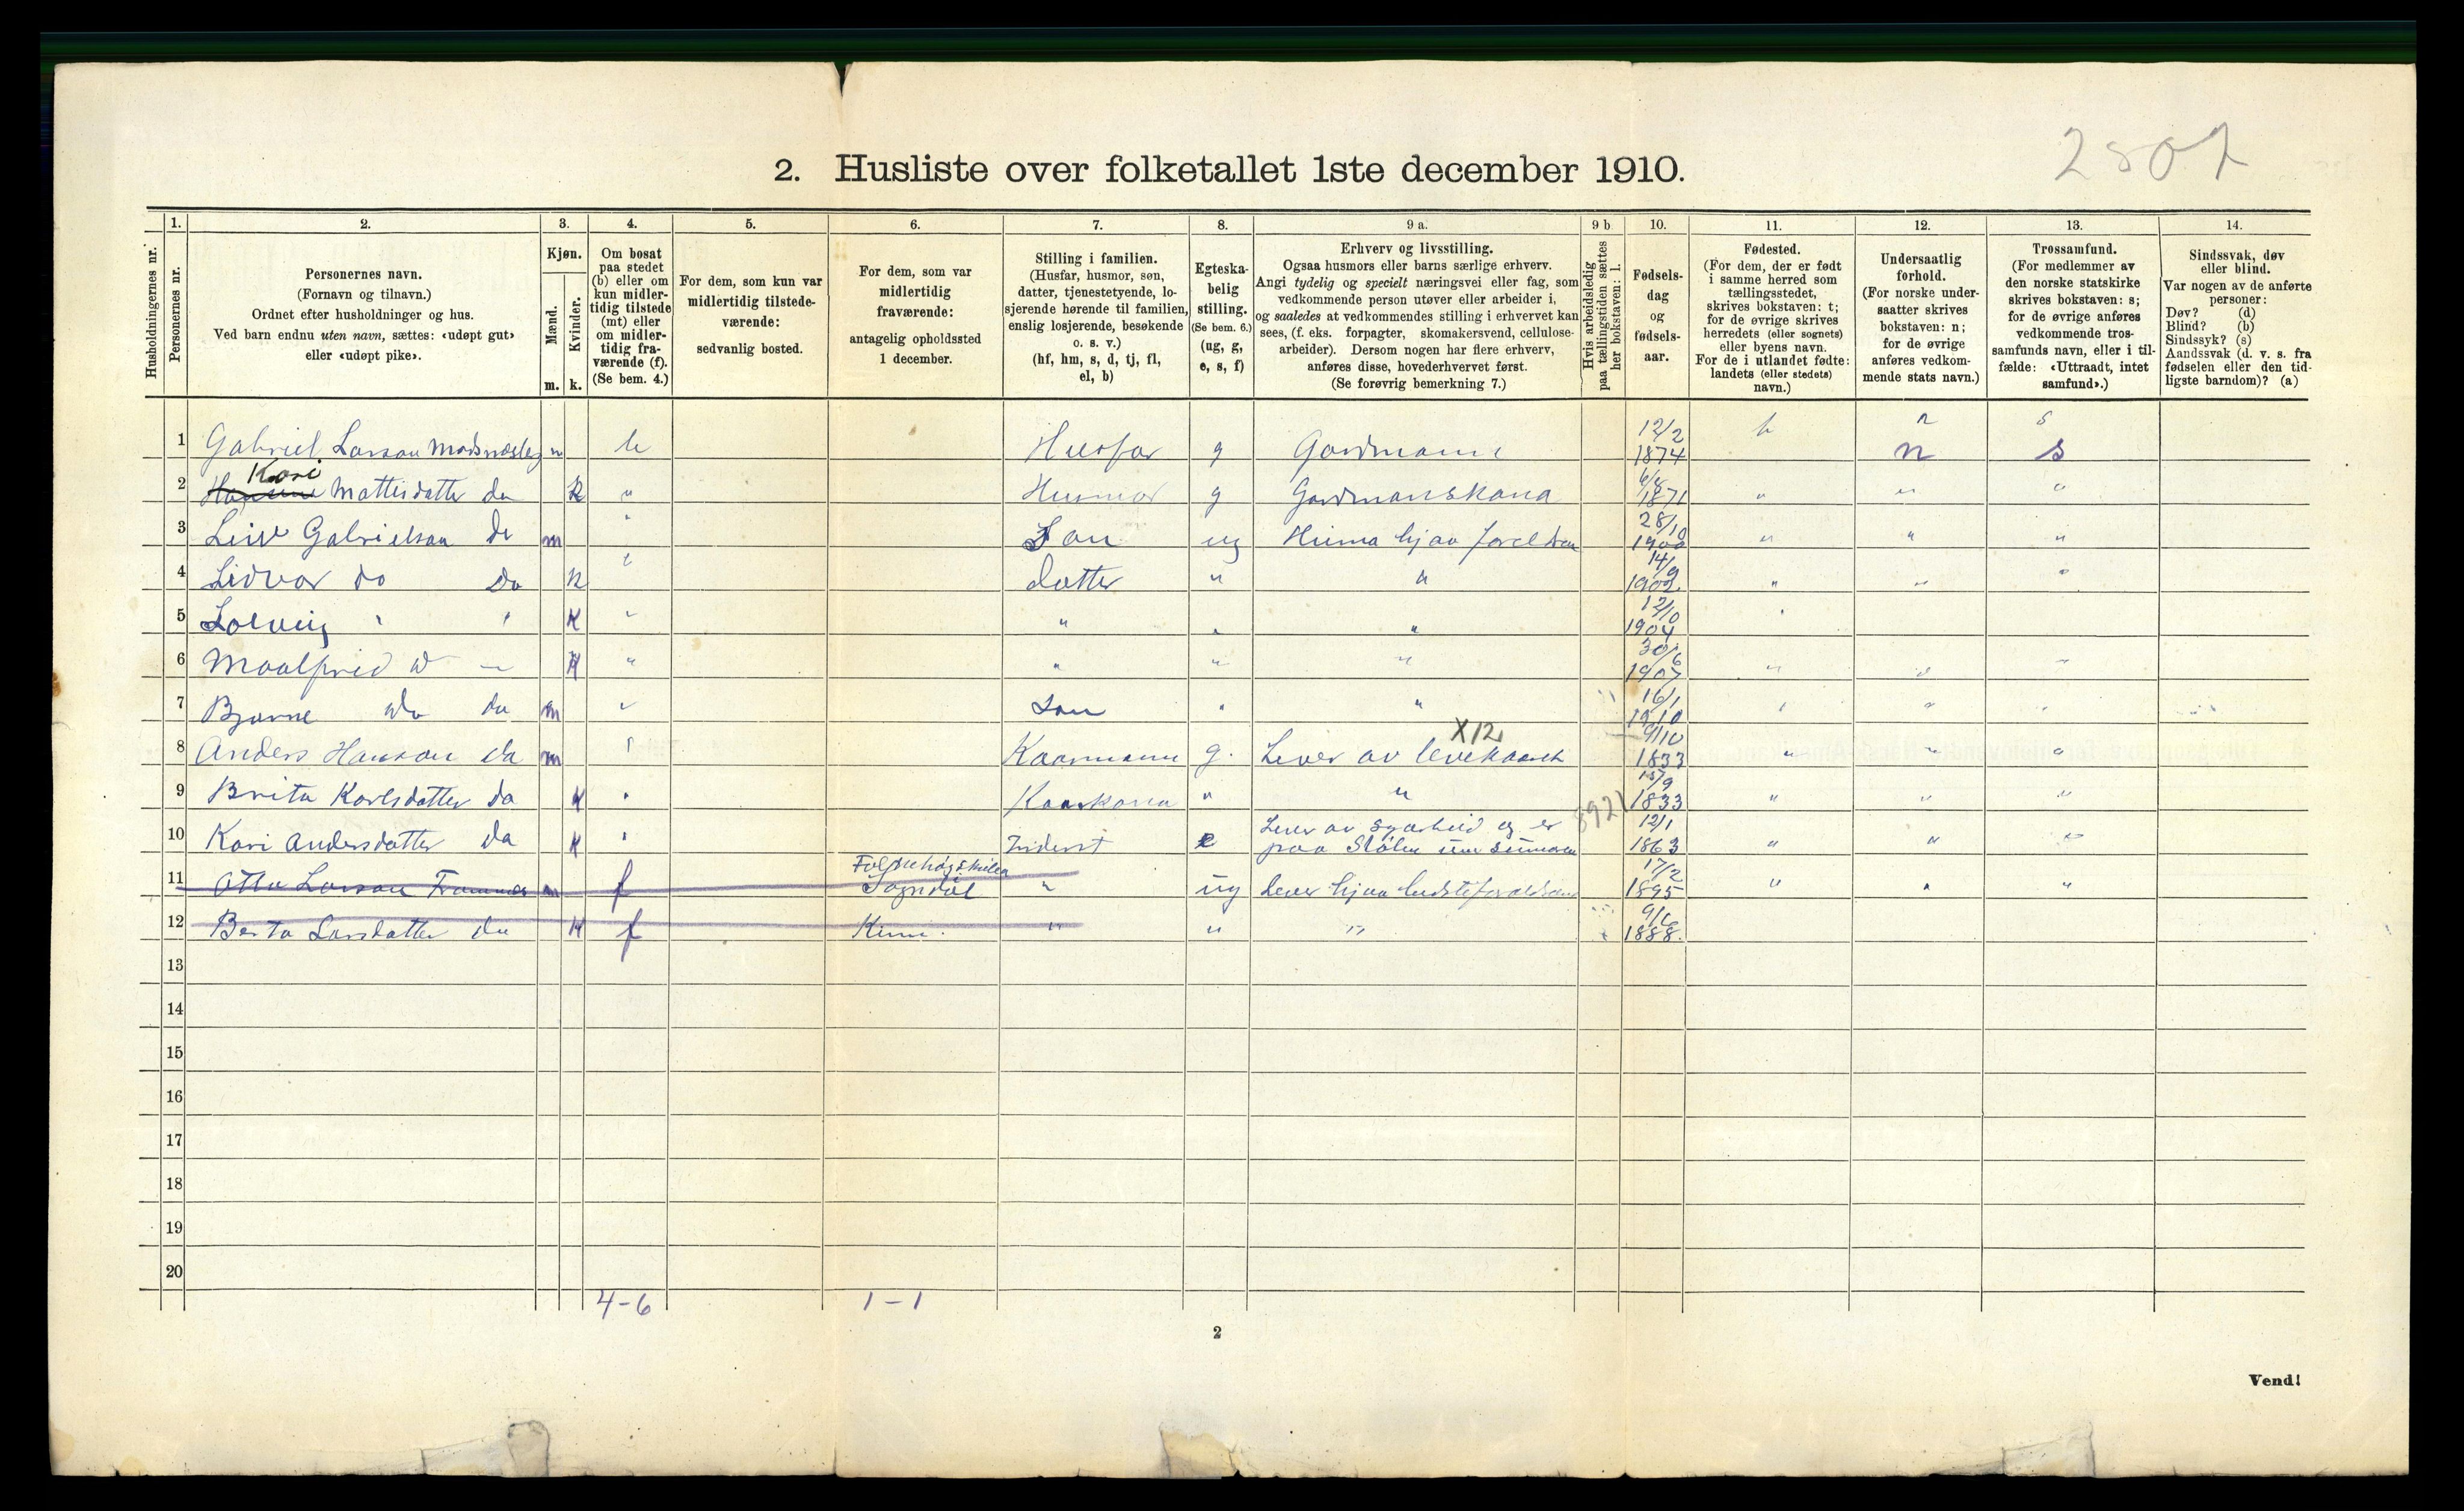 2. Husliste over folketallet 1ste december 1910.
1. 2. 3. 4. 5. 6. 7. 8. 9 a. 9 b 10. 11. 12. 13. 14.
Husholdningernes nr.
Personernes nr.
Personernes navn.
(Fornavn og tilnavn.)
Ordnet efter husholdninger og hus.
Ved barn endnu uten navn, sættes: «udøpt gut»
eller «udøpt pike».
Kjøn.
Mænd.
Kvinder.
m. k.
Om bosat
paa stedet
(b) eller om
kun midler-
tidig tilstede
(mt) eller
om midler-
tidig fra-
værende (f).
(Se bem. 4.)
For dem, som kun var
midlertidig tilstede-
værende:
sedvanlig bosted.
For dem, som var
midlertidig
fraværende:
antagelig opholdssted
1 december.
Stilling i familien.
(Husfar, husmor, søn,
datter, tjenestetyende, lo-
sjerende hørende til familien,
enslig losjerende, besøkende
o. s. v.)
(hf, hm, s, d, tj, fl,
el, b)
Egteska-
belig
stilling.
(Se bem. 6.)
(ug, g,
e, s, f)
Erhverv og livsstilling.
Ogsaa husmors eller barns særlige erhverv.
Angi tydelig og specielt næringsvei eller fag, som
vedkommende person utøver eller arbeider i,
og saaledes at vedkommendes stilling i erhvervet kan
sees, (f. eks. forpagter, skomakersvend, cellulose-
arbeider). Dersom nogen har flere erhverv,
anføres disse, hovederhvervet først.
(Se forøvrig bemerkning 7.)
Hvis arbeidsledig
paa tællingstiden sættes
her bokstaven: l.
Fødsels-
dag
og
fødsels-
aar.
Fødested.
(For dem, der er født
i samme herred som
tællingsstedet,
skrives bokstaven: t;
for de øvrige skrives
herredets (eller sognets)
eller byens navn.
For de i utlandet fødte:
landets (eller stedets)
navn.)
Undersaatlig
forhold.
(For norske under-
saatter skrives
bokstaven: n;
for de øvrige
anføres vedkom-
mende stats navn.)
Trossamfund.
(For medlemmer av
den norske statskirke
skrives bokstaven: s;
for de øvrige anføres
vedkommende tros-
samfunds navn, eller i til-
fælde: «Uttraadt, intet
samfund».)
Sindssvak, døv
eller blind.
Var nogen av de anførte
personer:
Døv? (d)
Blind? (b)
Sindssyk? (s)
Aandssvak (d. v. s. fra
fødselen eller den tid-
ligste barndom)? (a)
n s
1 Gabriel Larson m Husfar g Gardmann 12/2 1874 n s
Kari
2 Mattisdatter do k " Husmor g Gardmanskona 1871 " " "
3 Leiv Gabrielson do m " Son ug Heima hjaa foreldren 28/10 1900 " " "
4 Lidvar do do k " datter " " 14/9 1902 " " "
5 Solveig " " k " " " " 12/10 1904 "
6 Maalfrid do " k " " " " 30/6 1907 " " "
7 Bjarne do do m " Son " " 16/1 1910 " " "
X12
8 Anders Hanson do m " Kaarmann g. Lever av levekaaret 9/10 1833 " " "
9 Brita Karlsdatter do k " Kaarkona " " 1833 " " "
8921
10 Kari Andersdatter do k " e Lever av syarbeid og er paa Stølen um sumaren 12/1 1863 " " "
11 Otto Larson m f Folkehøgskulen Sogndal " ug Lever hjaa 17/2 1895 " " "
12 Berta Larsdatter do k f Kinn. " " " 9/6 1888.
13
14
15
16
17
18
19
20
4-6 1-1
2
Vend!